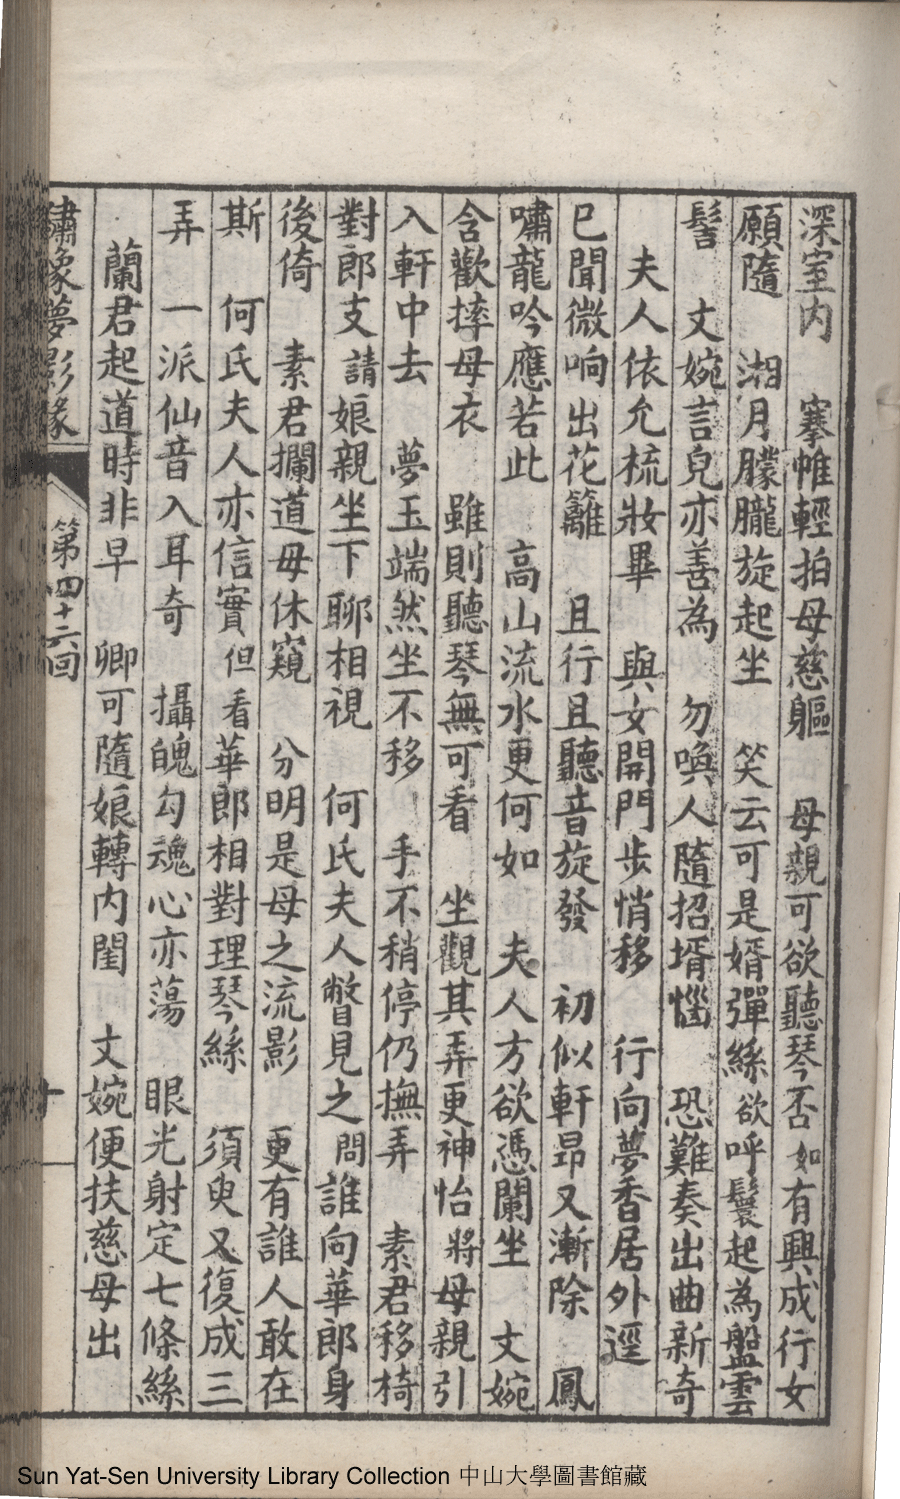 深室内　搴帷輕拍母慈軀　母親可欲聽琴否如有興成行女
願隨　湘月朦朧旋起坐　笑云可是婿彈絲欲呼鬟起為盤雲
髻　文婉言兒亦善為　勿喚人隨招壻惱　恐難奏出曲新奇
夫人依允梳妝畢　與女開門步悄移　行向夢香居外逕
已聞微响出花籬　且行且聽音旋發　初似軒昂又漸除　鳳
嘯龍吟應若此　高山流水更何如　夫人方欲憑闌坐　文婉
含歡摔母衣　雖則聽琴無可看　坐觀其弄更神怡將母親引
入軒中去　夢玉端然坐不移　手不稍停仍撫弄　素君移椅
對郎支請娘親坐下聊相視　何氏夫人瞥見之問誰向華郎身
後倚　素君攔道母休窺　分明是母之流影　更有誰人敢在
斯　何氏夫人亦信實但看華郎相對理琴絲　須臾又復成三
弄　一派仙音入耳奇　攝魄勾魂心亦蕩　眼光射定七條絲
蘭君起道時非早　卿可隨娘轉内閨　文婉便扶慈母出
繡像夢影緣　第四十六回
Sun Yat-Sen University Library Collection 中山大學圖書館藏